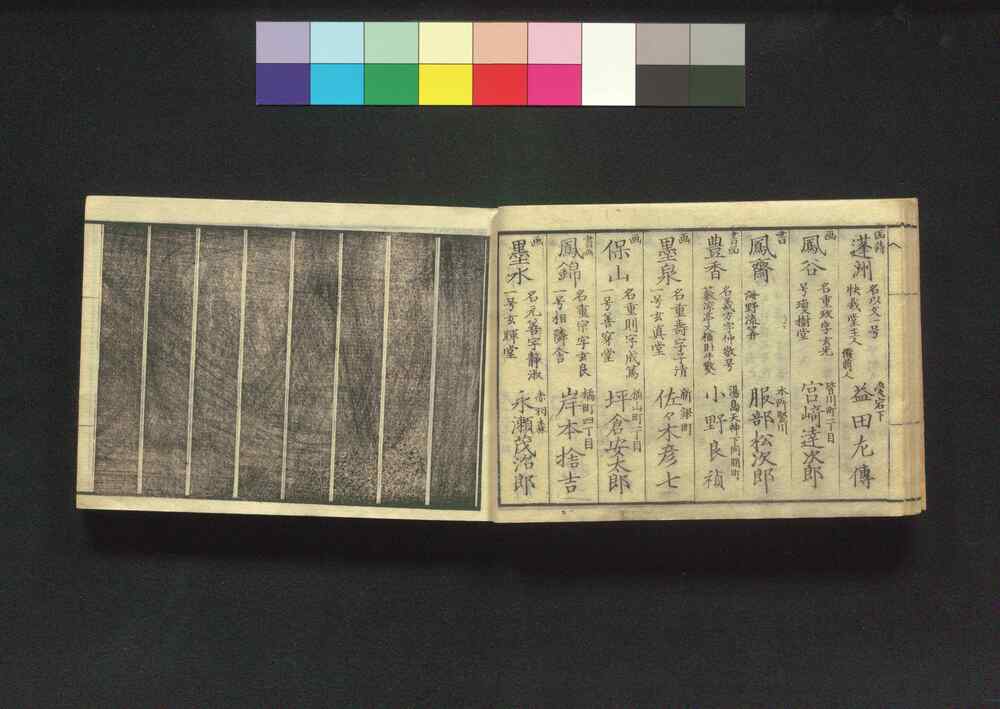 画詩 蓬州 名以文一号 快哉堂主人 備前人 愛宕下 益田左傳
画 鳳谷 名重政字玄光 号環樹堂 皆川町二丁目 宮﨑達次郎
書 鳳齋 海野流筭 本所緑川 服部松次郎
書画 豊香 名義方字仲敬号 湯島天神下同朋町 小野良禎
画 墨泉 名重壽字子清 一号玄真堂 新銀町 佐々木彦七
画 保山 名重則字成篤 一号善穿堂 横山町二丁目 坪倉安太郎
書画 鳳錦 名重宗字玄良 一号相隣舎 橘町四丁目 岸本捨吉
画 墨水 名元善字静淑 一号玄輝堂 赤羽森 永瀬茂治郎